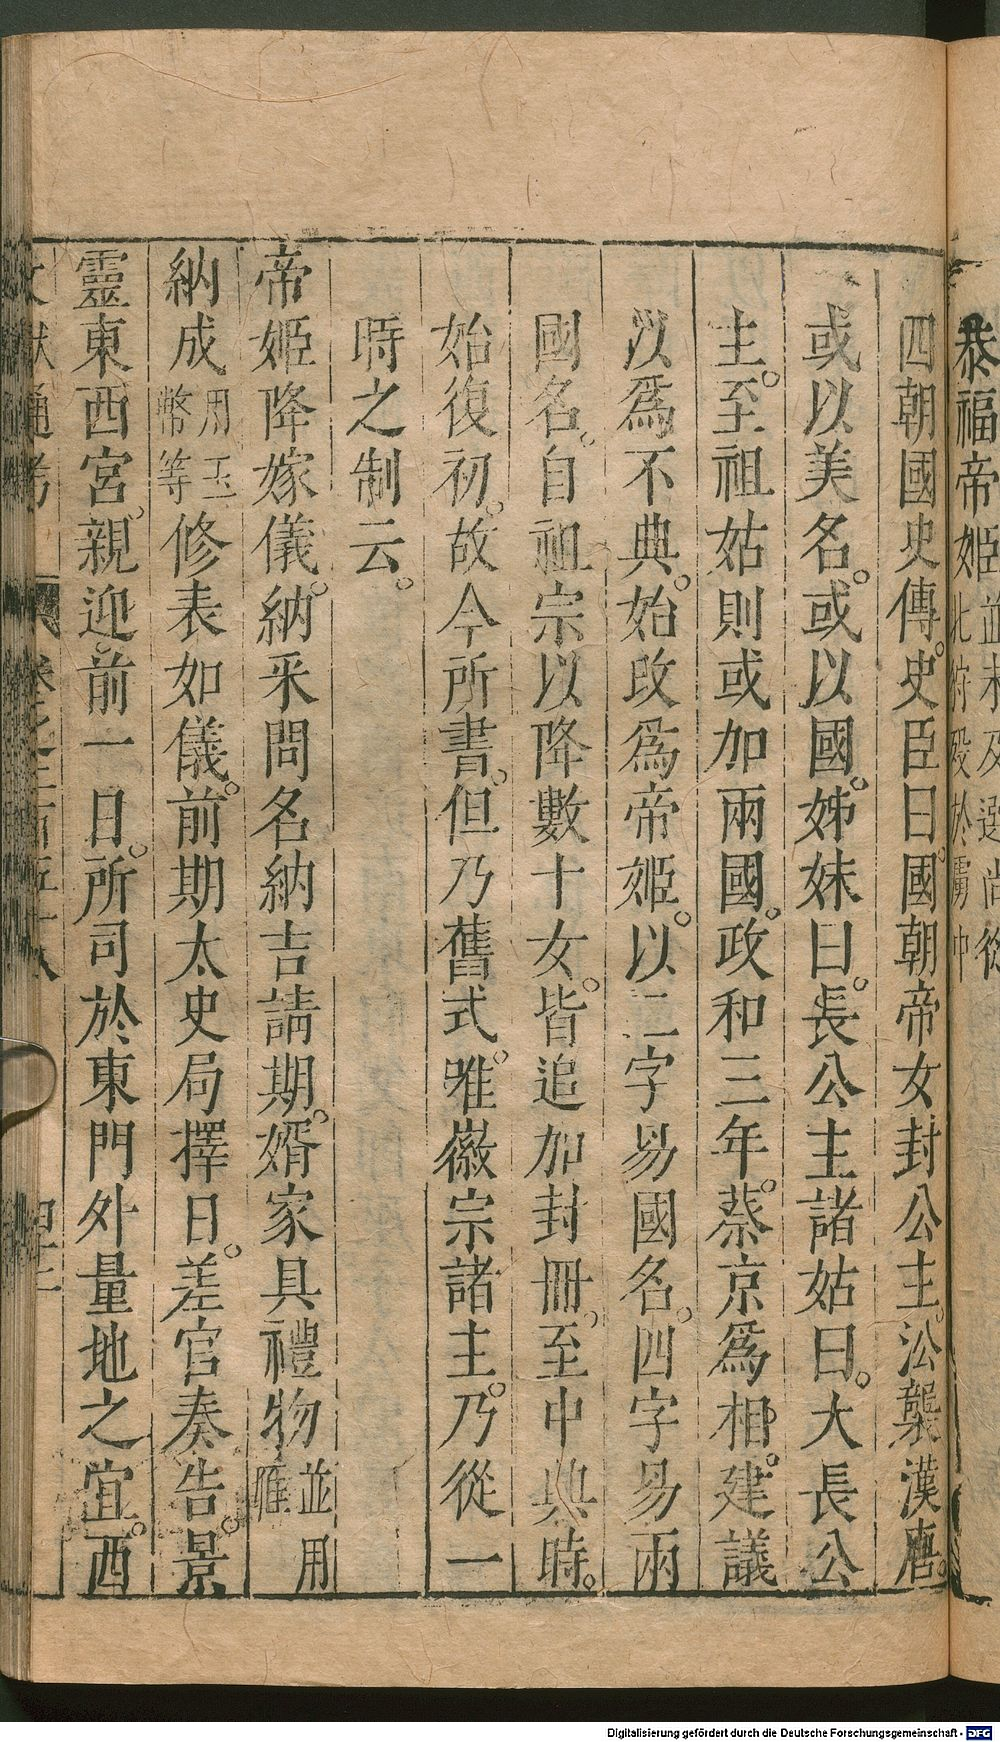 恭福帝姬並未及選尚從北狩殁於虜中
四朝國史傳。史臣曰。國朝帝女封公主。㳂襲漢唐。
或以美名。或以國。姊妹曰。長公主諸姑曰。大長公
主。至祖姑則或加兩國。政和三年。蔡京爲相。建議
以爲不典。始改爲帝姬。以二字易國名。四字易兩
國名。自祖宗以降數十女。皆追加封冊。至中興時。
始復初。故今所書。但乃舊式。唯徽宗諸主。乃從一
時之制云。
帝姬降嫁儀。納采問名納吉請期。婿家具禮物並用雁
納成用玉幣等修表如儀。前期太史局擇日。差官奏告。景
靈東西宮。親迎。前一日。所司於東門外量地之宜。西
文獻通考 卷之二百五十八 四十二
Digitalisierung gefördert durch die Deutsche Forschungsgemeinschaft - DFG